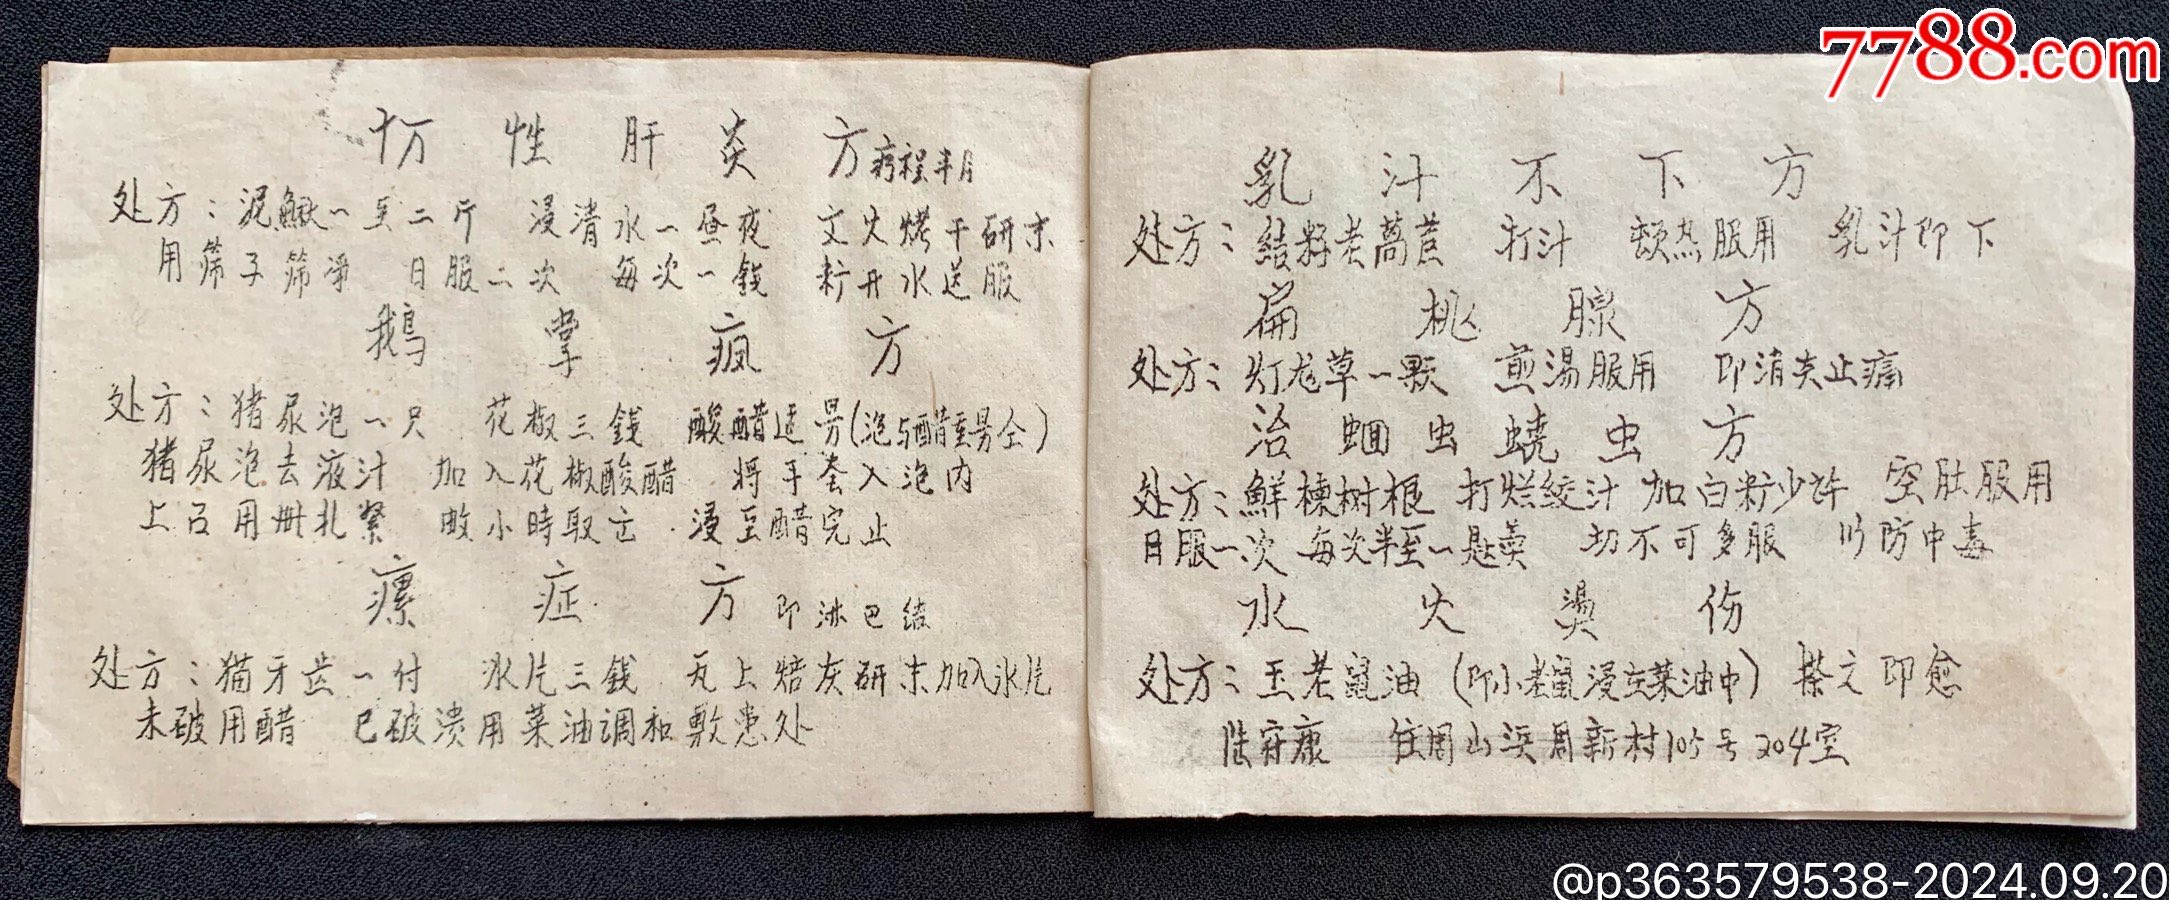 性肝炎方 疗程半月
处方：泥鳅一至二斤 浸清水一昼夜 文火烤干研末
用筛子筛净 日服二次 每次一錢 开水送服
鹅掌疯方
处方：猪尿泡一只 花椒三錢 酸醋适(泡与醋)
猪尿泡去液汁 加入花椒酸醋 将手入泡内
上扎紧 小時取 浸至醋完止
瘰症方 即淋巴结
处方：猫牙齿一付 冰片三錢 瓦上焙灰研末加入冰片
未破用醋 已破溃用菜油调和敷患处
乳汁不下方
处方：結老萵苣 打汁 热服用 乳汁即下
扁桃腺方
处方：灯龙草一颗 煎湯服用 即消炎止痛
治蛔虫蟯虫方
处方：鮮楝树根 打烂絞汁 加白少许 空肚服用
日服一次 每次半至一 切不可多服 以防中毒
水火燙伤
处方：玉老鼠油（即小老鼠浸在菜油中）搽之即愈
陆府康 住周山浜周新村105号204室
7788.com
@p363579538-2024.09.20